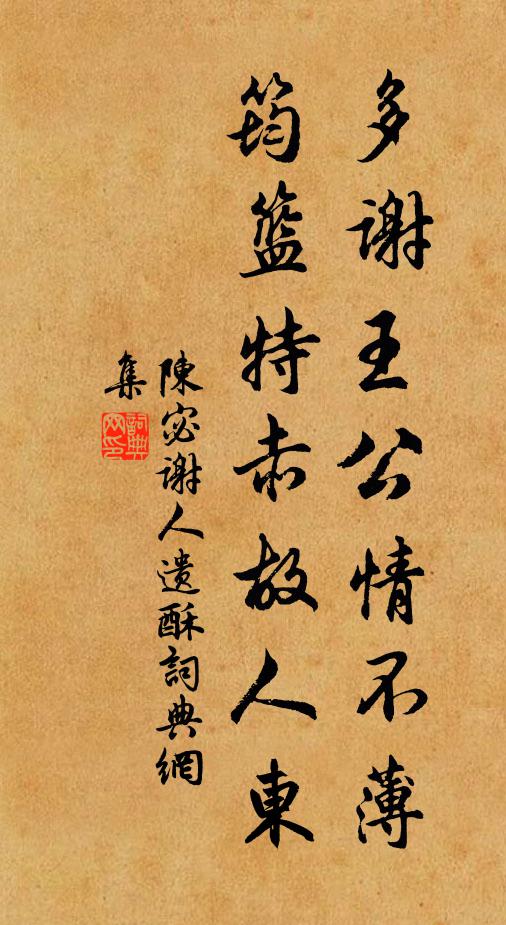 多谢王公情不薄
筠籃特赤故人東
陳宓谢人遗酥詞典網
集
詞典
网印